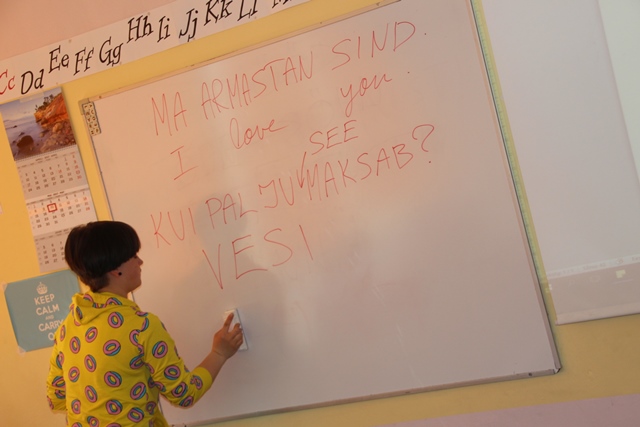 Cc Dd Ee Ff Gg Hh Ii Jj Kk Ll
MA ARMASTAN SIND.
I love you.
SEE
KUI PALJU MAKSAB?
VESI
KEEP
CALM
AND
CARRY